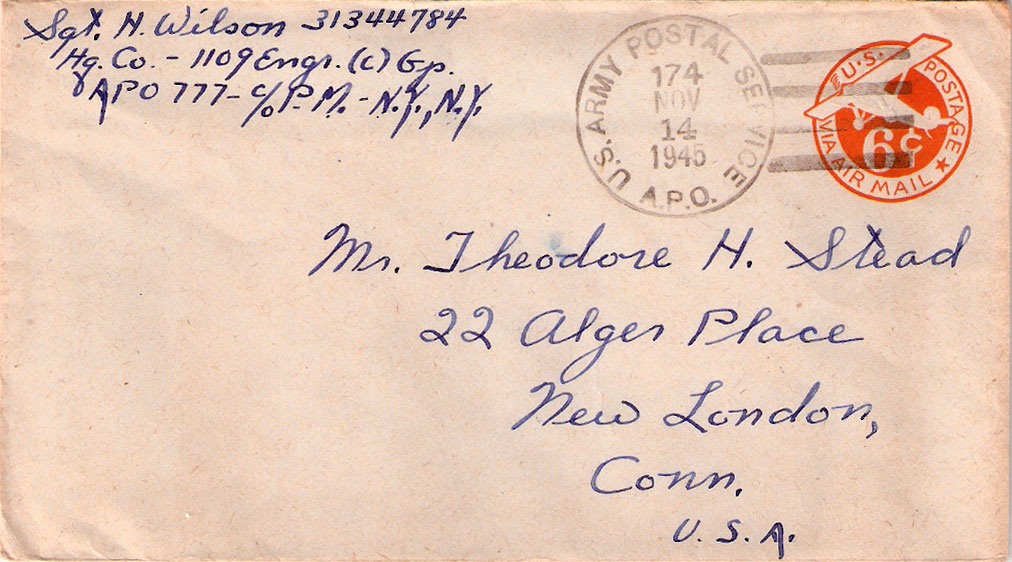 Sgt. H. Wilson 31344784
Hq. Co. - 1109 Engr. (C) Gp.
APO 777 - c/o P.M. - N.Y., N.Y.
U.S. ARMY POSTAL SERVICE
174
NOV
14
1945
A.P.O.
U.S. POSTAGE
6¢
VIA AIR MAIL
Mr. Theodore H. Stead
22 Alger Place
New London,
Conn.
U.S.A.